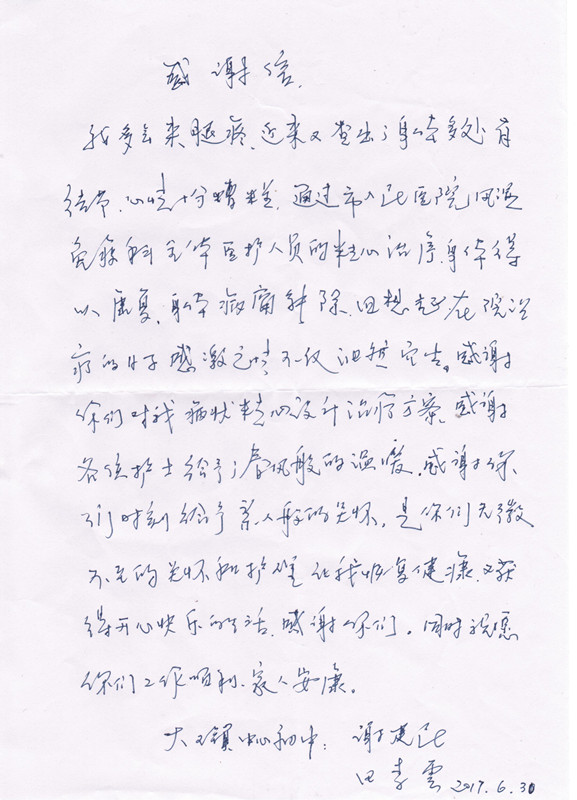 感谢信
我多年来腿疼,近来又查出了身体多处有
结节,心情十分糟糕,通过市人民医院风湿
免疫科全体医护人员的精心治疗,身体得
以康复,身体病痛解除,回想起在院治
疗的日子感激之情不仅油然而生。感谢
你们对我病状精心设计治疗方案,感谢
各位护士给予了春风般的温暖,感谢你
们时刻给予亲人般的关怀,是你们无微
不至的关怀和护理让我恢复健康,又获
得开心快乐的生活,感谢你们。同时祝愿
你们工作顺利、家人安康。
大王镇中心初中:谢建民
田孝云 2017.6.30